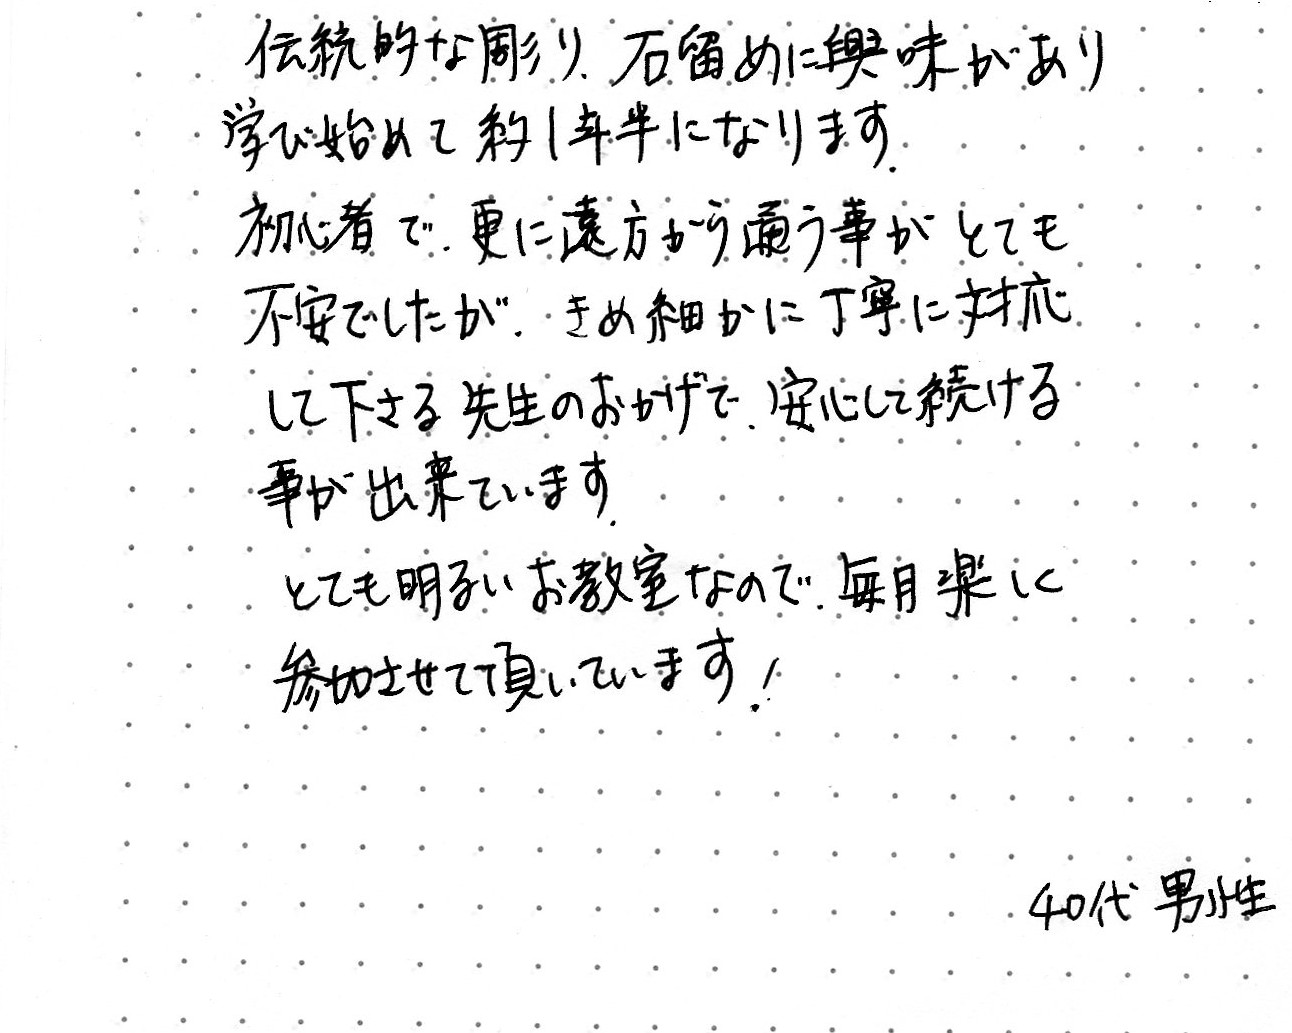 伝統的な彫り、石留めに興味があり
学び始めて約1年半になります。
初心者で、更に遠方から通う事がとても
不安でしたが、きめ細かに丁寧に対応
して下さる先生のおかげで、安心して続ける
事が出来ています。
とても明るいお教室なので、毎月楽しく
参加させて頂いています!
40代 男性